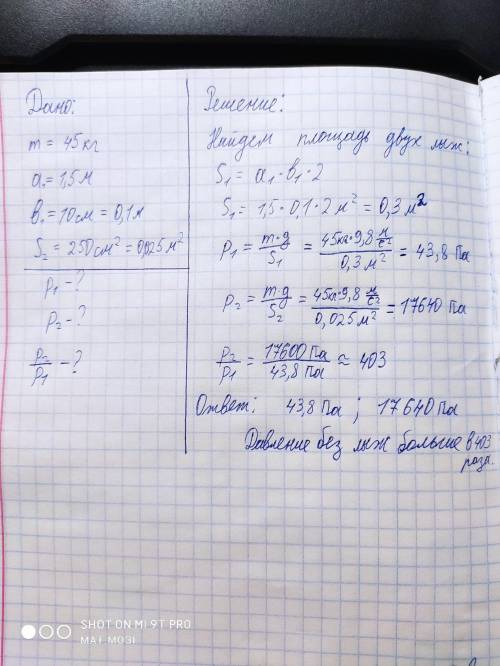 Дано:
m = 45 кг
a₁ = 1,5 м
b₁ = 10 см = 0,1 м
S₂ = 250 см² = 0,025 м²
p₁ - ?
p₂ - ?
p₂/p₁ - ?
Решение:
Найдем площадь двух лыж:
S₁ = a₁ · b₁ · 2
S₁ = 1,5 · 0,1 · 2 м² = 0,3 м²
p₁ = m·g/S₁ = 45кг·9,8 м/с²/0,3 м² = 43,8 Па
p₂ = m·g/S₂ = 45кг·9,8 м/с²/0,025 м² = 17640 Па
p₂/p₁ = 17600 Па/43,8 Па ≈ 403
Ответ: 43,8 Па ; 17640 Па
Давление без лыж больше в 403
раза.
SHOT ON MI 9T PRO
MAT-MO3I